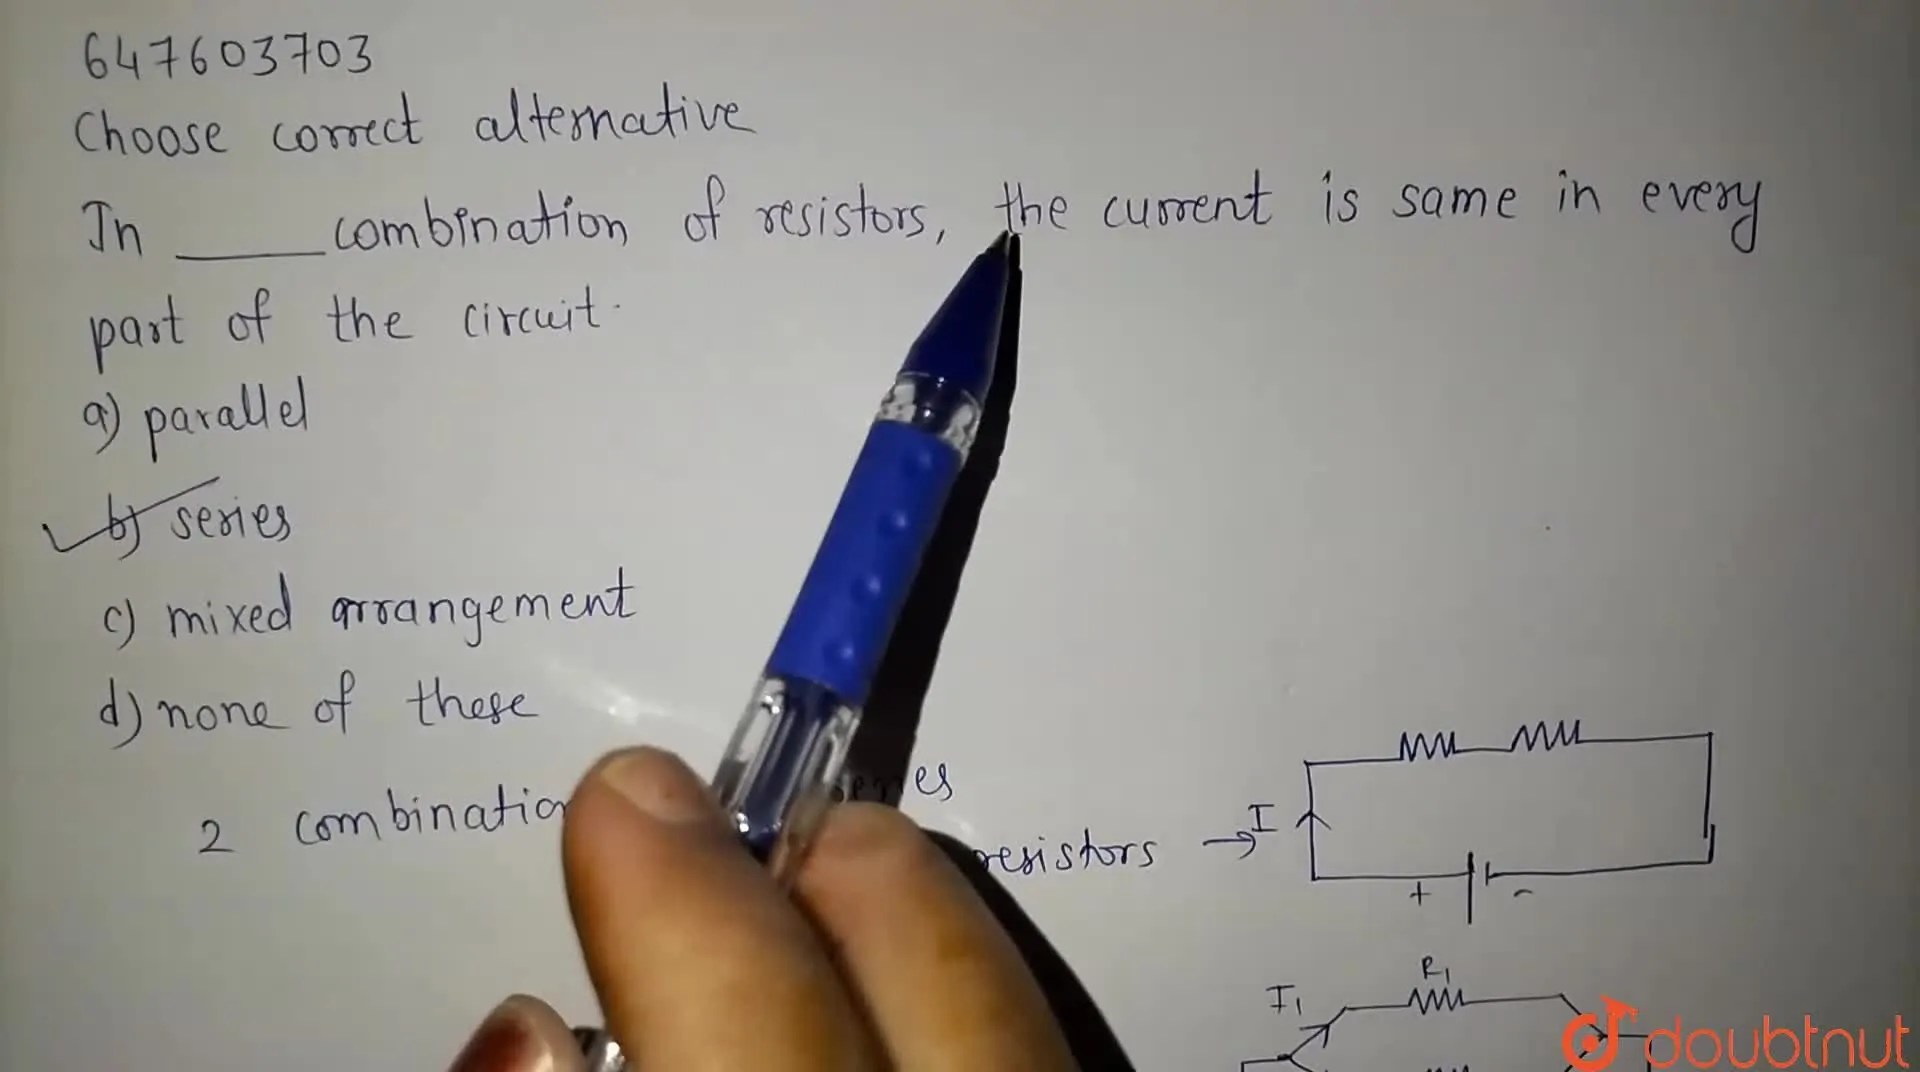 647603703
Choose correct alternative
In ____ combination of resistors, the current is same in every
part of the circuit.
a) parallel
b) series
c) mixed arrangement
d) none of these
2 combination
resistors → I
+ -
R1
I1
doubtnut